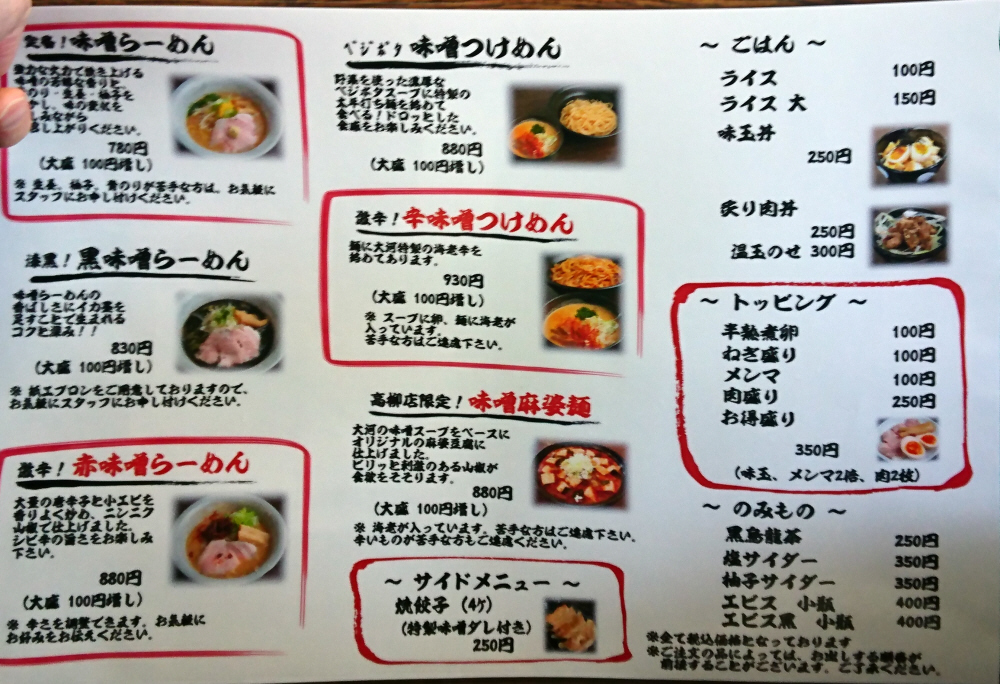 定番！味噌らーめん
強力な火力で焼き上げる
味噌の芳醇な香りと、
のり・生姜・柚子を
かし、味の変化を
しみながら
召し上がりください。
780円
(大盛 100円増し)
※ 生姜、柚子、青のりが苦手な方は、お気軽に
スタッフにお申し付けください。
漆黒！黒味噌らーめん
味噌らーめんの
香ばしさにイカ墨を
足すことで生まれる
コクと深み！！
830円
(大盛 100円増し)
※ 紙エプロンをご用意しておりますので、
お気軽にスタッフにお申し付けください。
激辛！赤味噌らーめん
大量の唐辛子と小エビを
香りよく炒め、ニンニク
山椒で仕上げました。
シビ辛の旨さをお楽しみ
下さい。
880円
(大盛 100円増し)
※ 辛さを調整できます。お気軽に
お好みをお伝えください。
ベジポタ 味噌つけめん
野菜を使った濃厚な
ベジポタスープに特製の
太手打ち麺を絡めて
食べる！ドロッとした
食感をお楽しみください。
880円
(大盛 100円増し)
激辛！辛味噌つけめん
麺に大河特製の海老辛を
絡めてあります。
930円
(大盛 100円増し)
※ スープに卵、麺に海老が
入っています。
苦手な方はご遠慮下さい。
高柳店限定！味噌麻婆麺
大河の味噌スープをベースに
オリジナルの麻婆豆腐に
仕上げました。
ピリッと刺激のある山椒が
食欲をそそります。
880円
(大盛 100円増し)
※ 海老が入っています。苦手な方はご遠慮下さい。
辛いものが苦手な方もご遠慮ください。
～ サイドメニュー ～
焼餃子 (4ケ)
(特製味噌ダレ付き)
250円
～ ごはん ～
ライス 100円
ライス 大 150円
味玉丼
250円
炙り肉丼
250円
温玉のせ 300円
～ トッピング ～
半熟煮卵 100円
ねぎ盛り 100円
メンマ 100円
肉盛り 250円
お得盛り
350円
(味玉、メンマ2倍、肉2枚)
～ のみもの ～
黒烏龍茶 250円
塩サイダー 350円
柚子サイダー 350円
エビス 小瓶 400円
エビス黒 小瓶 400円
※全て税込価格となっております
※ご注文の品によっては、お出しする順番が
前後することがございます。ご了承ください。